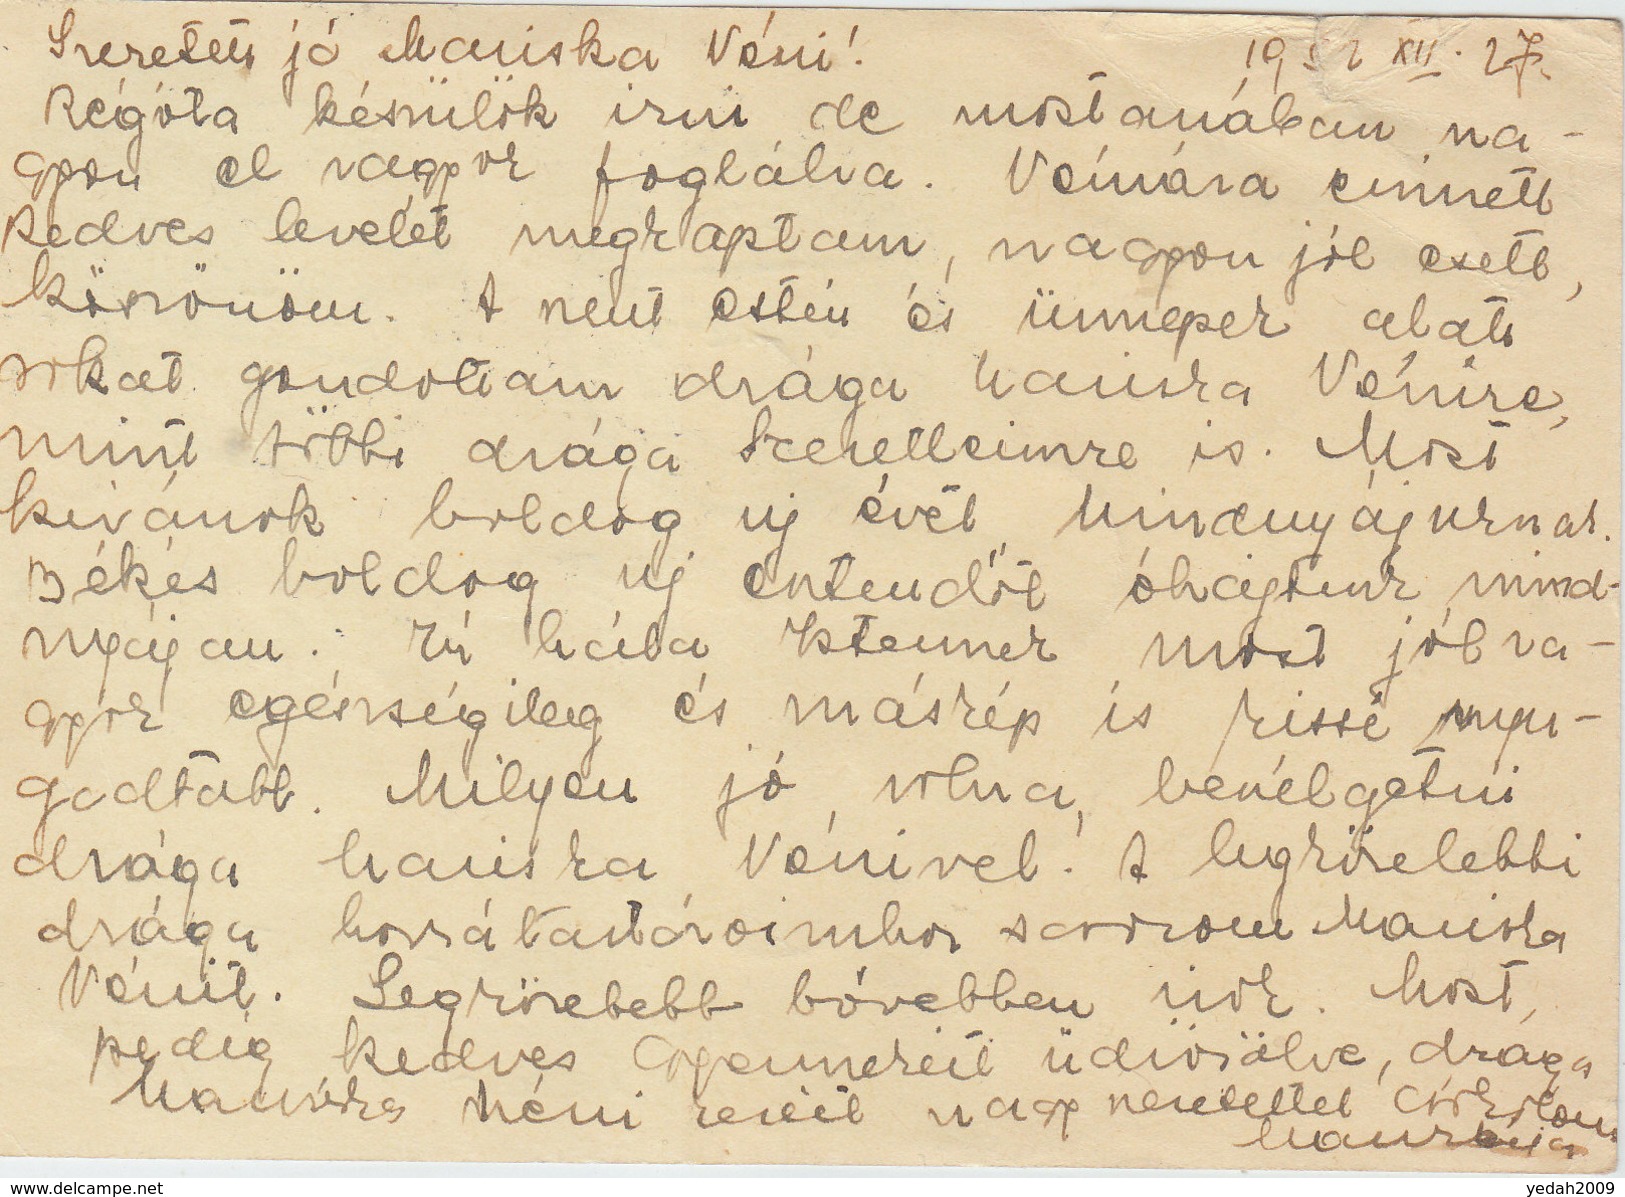 Szeretett jó Mariska Néni! 1951 XII. 27.
Régóta készülök irni de mostanában na-
gyon el vagyok foglalva. Némára cimzett
kedves levelét megkaptam, nagyon jól esett,
köszönöm. A szent estén és ünnepek alatt
sokat gondoltam drága Mariska Nénire,
mint többi drága Szeretteimre is. Most
kivánok boldog uj évet Mindnyájuknak.
Békés boldog uj esztendőt óhajtunk mind-
nyájan. Mi hála Istennek most jól va-
gyok egészségileg és másképp is kissé nyu-
godtabb. Milyen jó volna, beszélgetni
drága Mariska Nénivel! A legközelebbi
drága hozzátartozóimhoz sorozom Mariska
Nénit. Legközelebb bővebben irok. Most,
pedig kedves Gyermekeit üdvözölve, drága
Mariska Néni kezeit nagy szeretettel csókolom
www.delcampe.net yedah2009